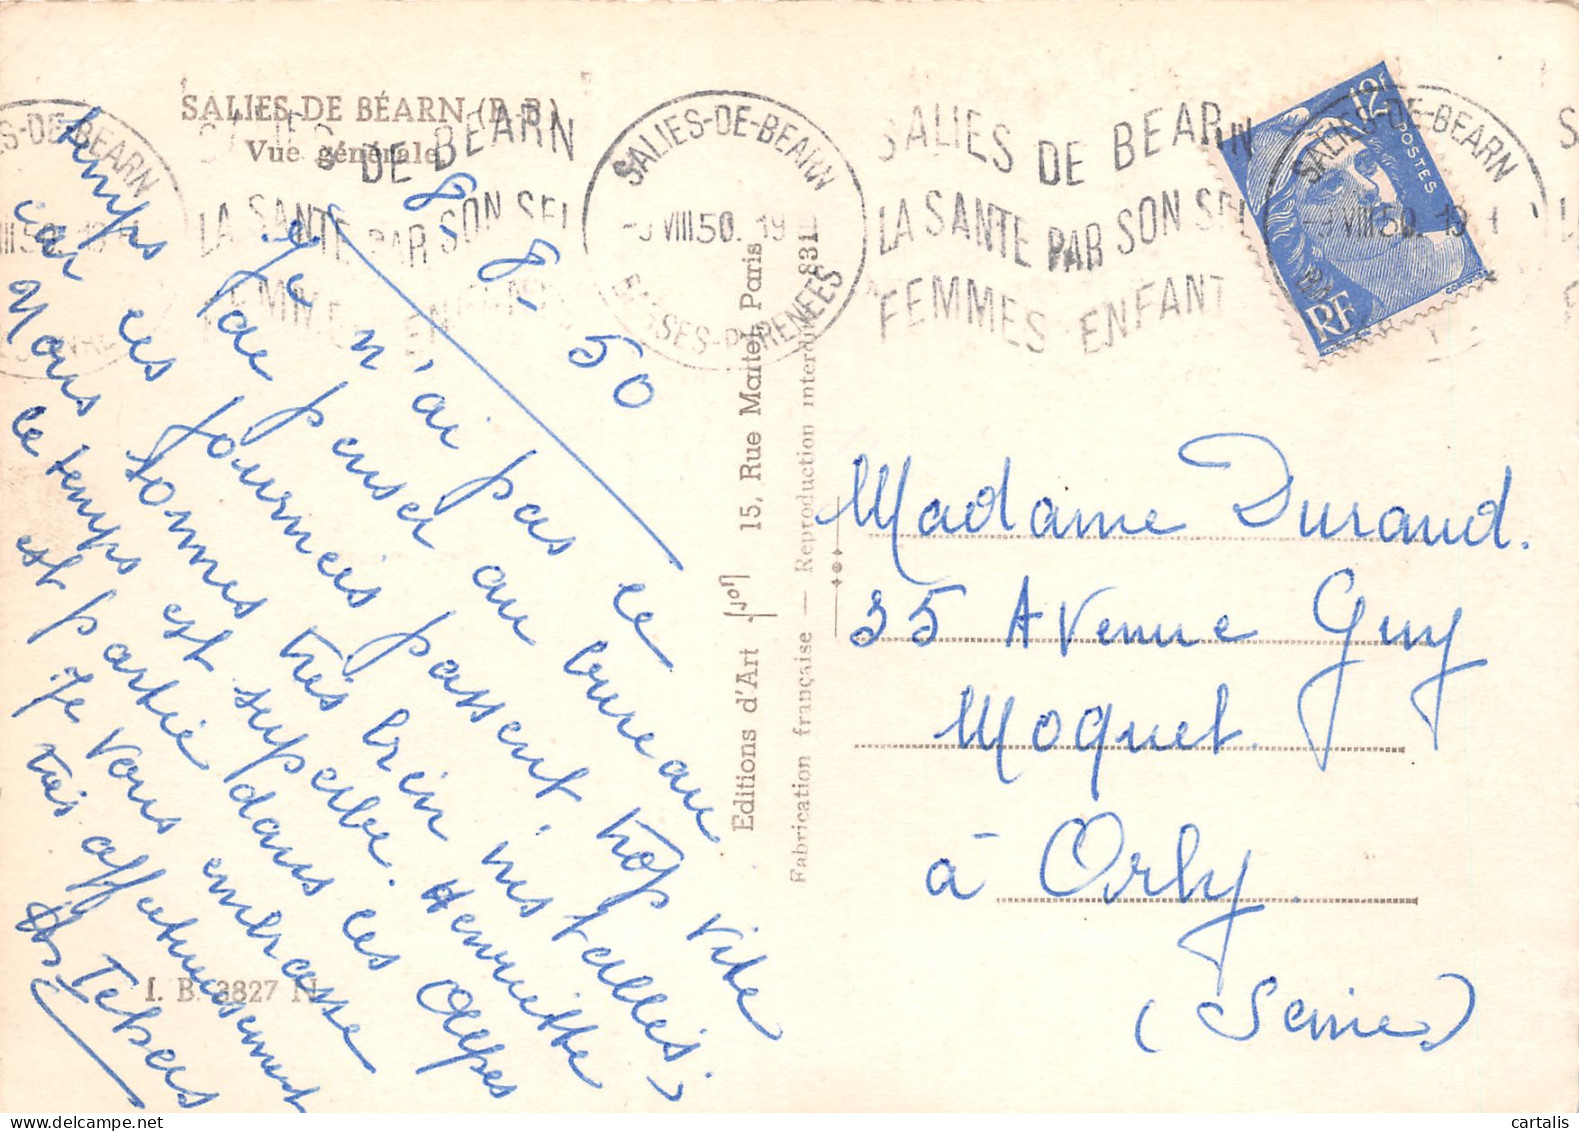 SALIES-DE-BÉARN (B.-P.)
Vue générale
SALIES DE BEARN
LA SANTE PAR SON SEL
FEMMES ENFANT
SALIES-DE-BEARN
-9 VIII 50. 19
BASSES-PYRENEES
SALIES DE BEARN
LA SANTE PAR SON SEL
FEMMES ENFANT
SALIES-DE-BEARN
-9 VIII 50. 19
12F
POSTES
RF
8 - 8 - 50
Je n'ai pas le
temps de penser au bureau
car les journées passent trop vite
Nous sommes très bien installés;
le temps est superbe. Henriette
est partie dans les Alpes
Je vous embrasse
très affectueusement
Editions d'Art 15, Rue Maitet Paris
Fabrication française — Reproduction interdite 831
I. B. 3827 N
Madame Durand.
35 Avenue Guy
Moquet.
à Orly.
(Seine)
cartalis